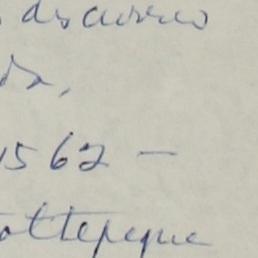 discurso
da,
1562 —
oltepeque